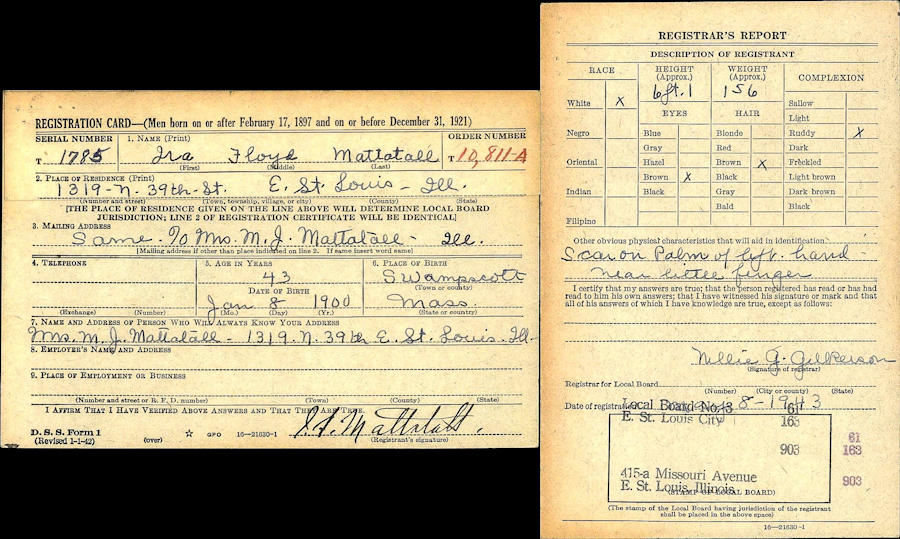 REGISTRATION CARD—(Men born on or after February 17, 1897 and on or before December 31, 1921)
SERIAL NUMBER 1. NAME (Print) ORDER NUMBER
T 1785 Ira Floyd Mattatall T 10,811-A
(First) (Middle) (Last)
2. PLACE OF RESIDENCE (Print)
1319-N. 39th St. E. St. Louis - Ill.
(Number and street) (Town, township, village, or city) (County) (State)
[THE PLACE OF RESIDENCE GIVEN ON THE LINE ABOVE WILL DETERMINE LOCAL BOARD
JURISDICTION; LINE 2 OF REGISTRATION CERTIFICATE WILL BE IDENTICAL]
3. MAILING ADDRESS
Same - % Mrs. M. J. Mattatall - Ill.
[Mailing address if other than place indicated on line 2. If same insert word same]
4. TELEPHONE 5. AGE IN YEARS 6. PLACE OF BIRTH
43 Swampscott
DATE OF BIRTH (Town or county)
Jan 8 1900 Mass.
(Exchange) (Number) (Mo.) (Day) (Yr.) (State or country)
7. NAME AND ADDRESS OF PERSON WHO WILL ALWAYS KNOW YOUR ADDRESS
Mrs. M. J. Mattatall - 1319. N. 39th E. St. Louis. Ill-
8. EMPLOYER'S NAME AND ADDRESS
9. PLACE OF EMPLOYMENT OR BUSINESS
(Number and street or R. F. D. number) (Town) (County) (State)
I AFFIRM THAT I HAVE VERIFIED ABOVE ANSWERS AND THAT THEY ARE TRUE.
D. S. S. Form 1
(Revised 1-1-42) (over) GPO 16—21630-1 (Registrant's signature)
Mattatall
REGISTRAR'S REPORT
DESCRIPTION OF REGISTRANT
RACE HEIGHT (Approx.) WEIGHT (Approx.) COMPLEXION
6ft. 1 156
White X Sallow
EYES HAIR Light
Negro Blue Blonde Ruddy X
Gray Red Dark
Oriental Hazel Brown X Freckled
Brown X Black Light brown
Indian Black Gray Dark brown
Bald Black
Filipino
Other obvious physical characteristics that will aid in identification
Scar on Palm of left hand -
near little finger
I certify that my answers are true; that the person registered has read or has had
read to him his own answers; that I have witnessed his signature or mark and that
all of his answers of which I have knowledge are true, except as follows:
Nellie G. Gilkerson
(Signature of registrar)
Registrar for Local Board
(Number) (City or county) (State)
Date of registration 8-1943
Local Board No. 3 61
E. St. Louis City 163
903
415-a Missouri Avenue
E. St. Louis, Illinois
(STAMP OF LOCAL BOARD)
61
163
903
(The stamp of the Local Board having jurisdiction of the registrant
shall be placed in the above space)
16—21630-1